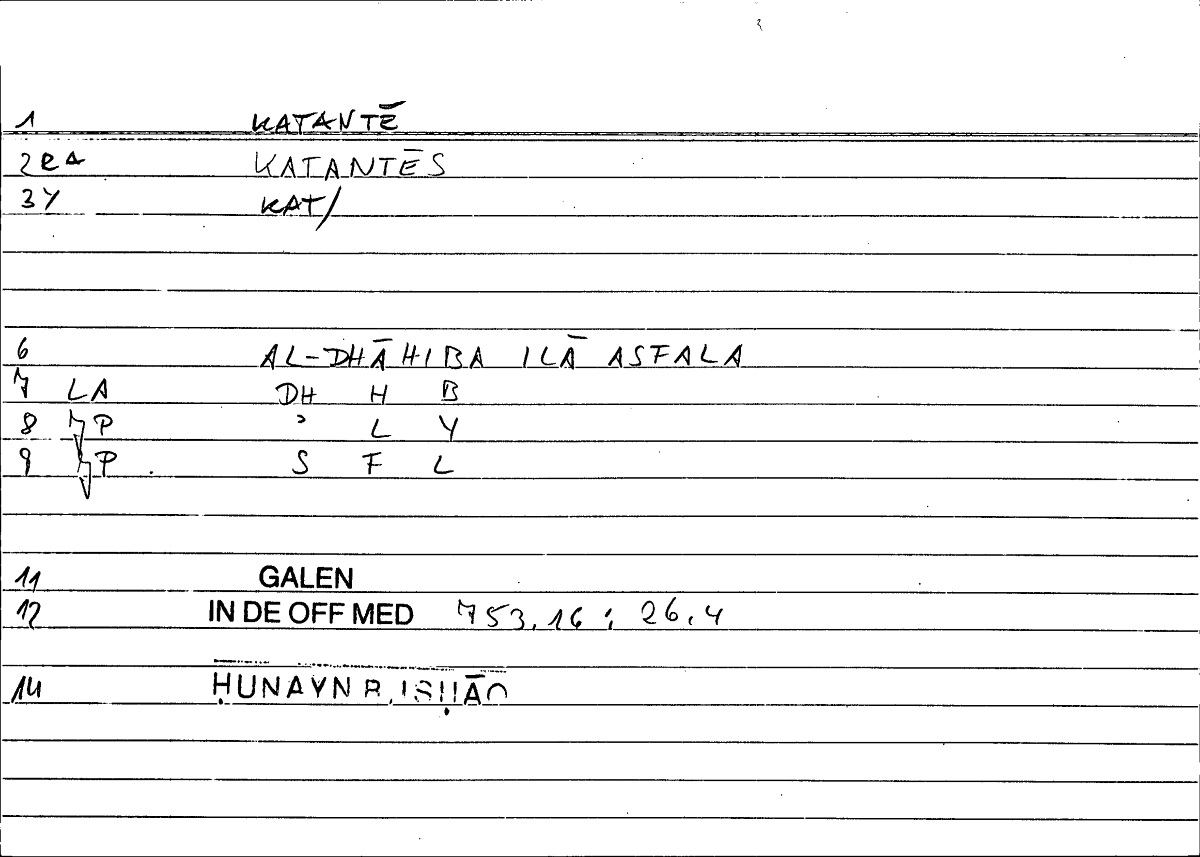 1 KATANTĒ
2RA KATANTĒS
3Y KAT/
6 AL-DHĀHIBA ILĀ ASFALA
7 LA DH H B
8 P ʾ L Y
9 P S F L
11 GALEN
12 IN DE OFF MED 753.16 : 26.4
14 ḤUNAYN B. ISḤĀQ